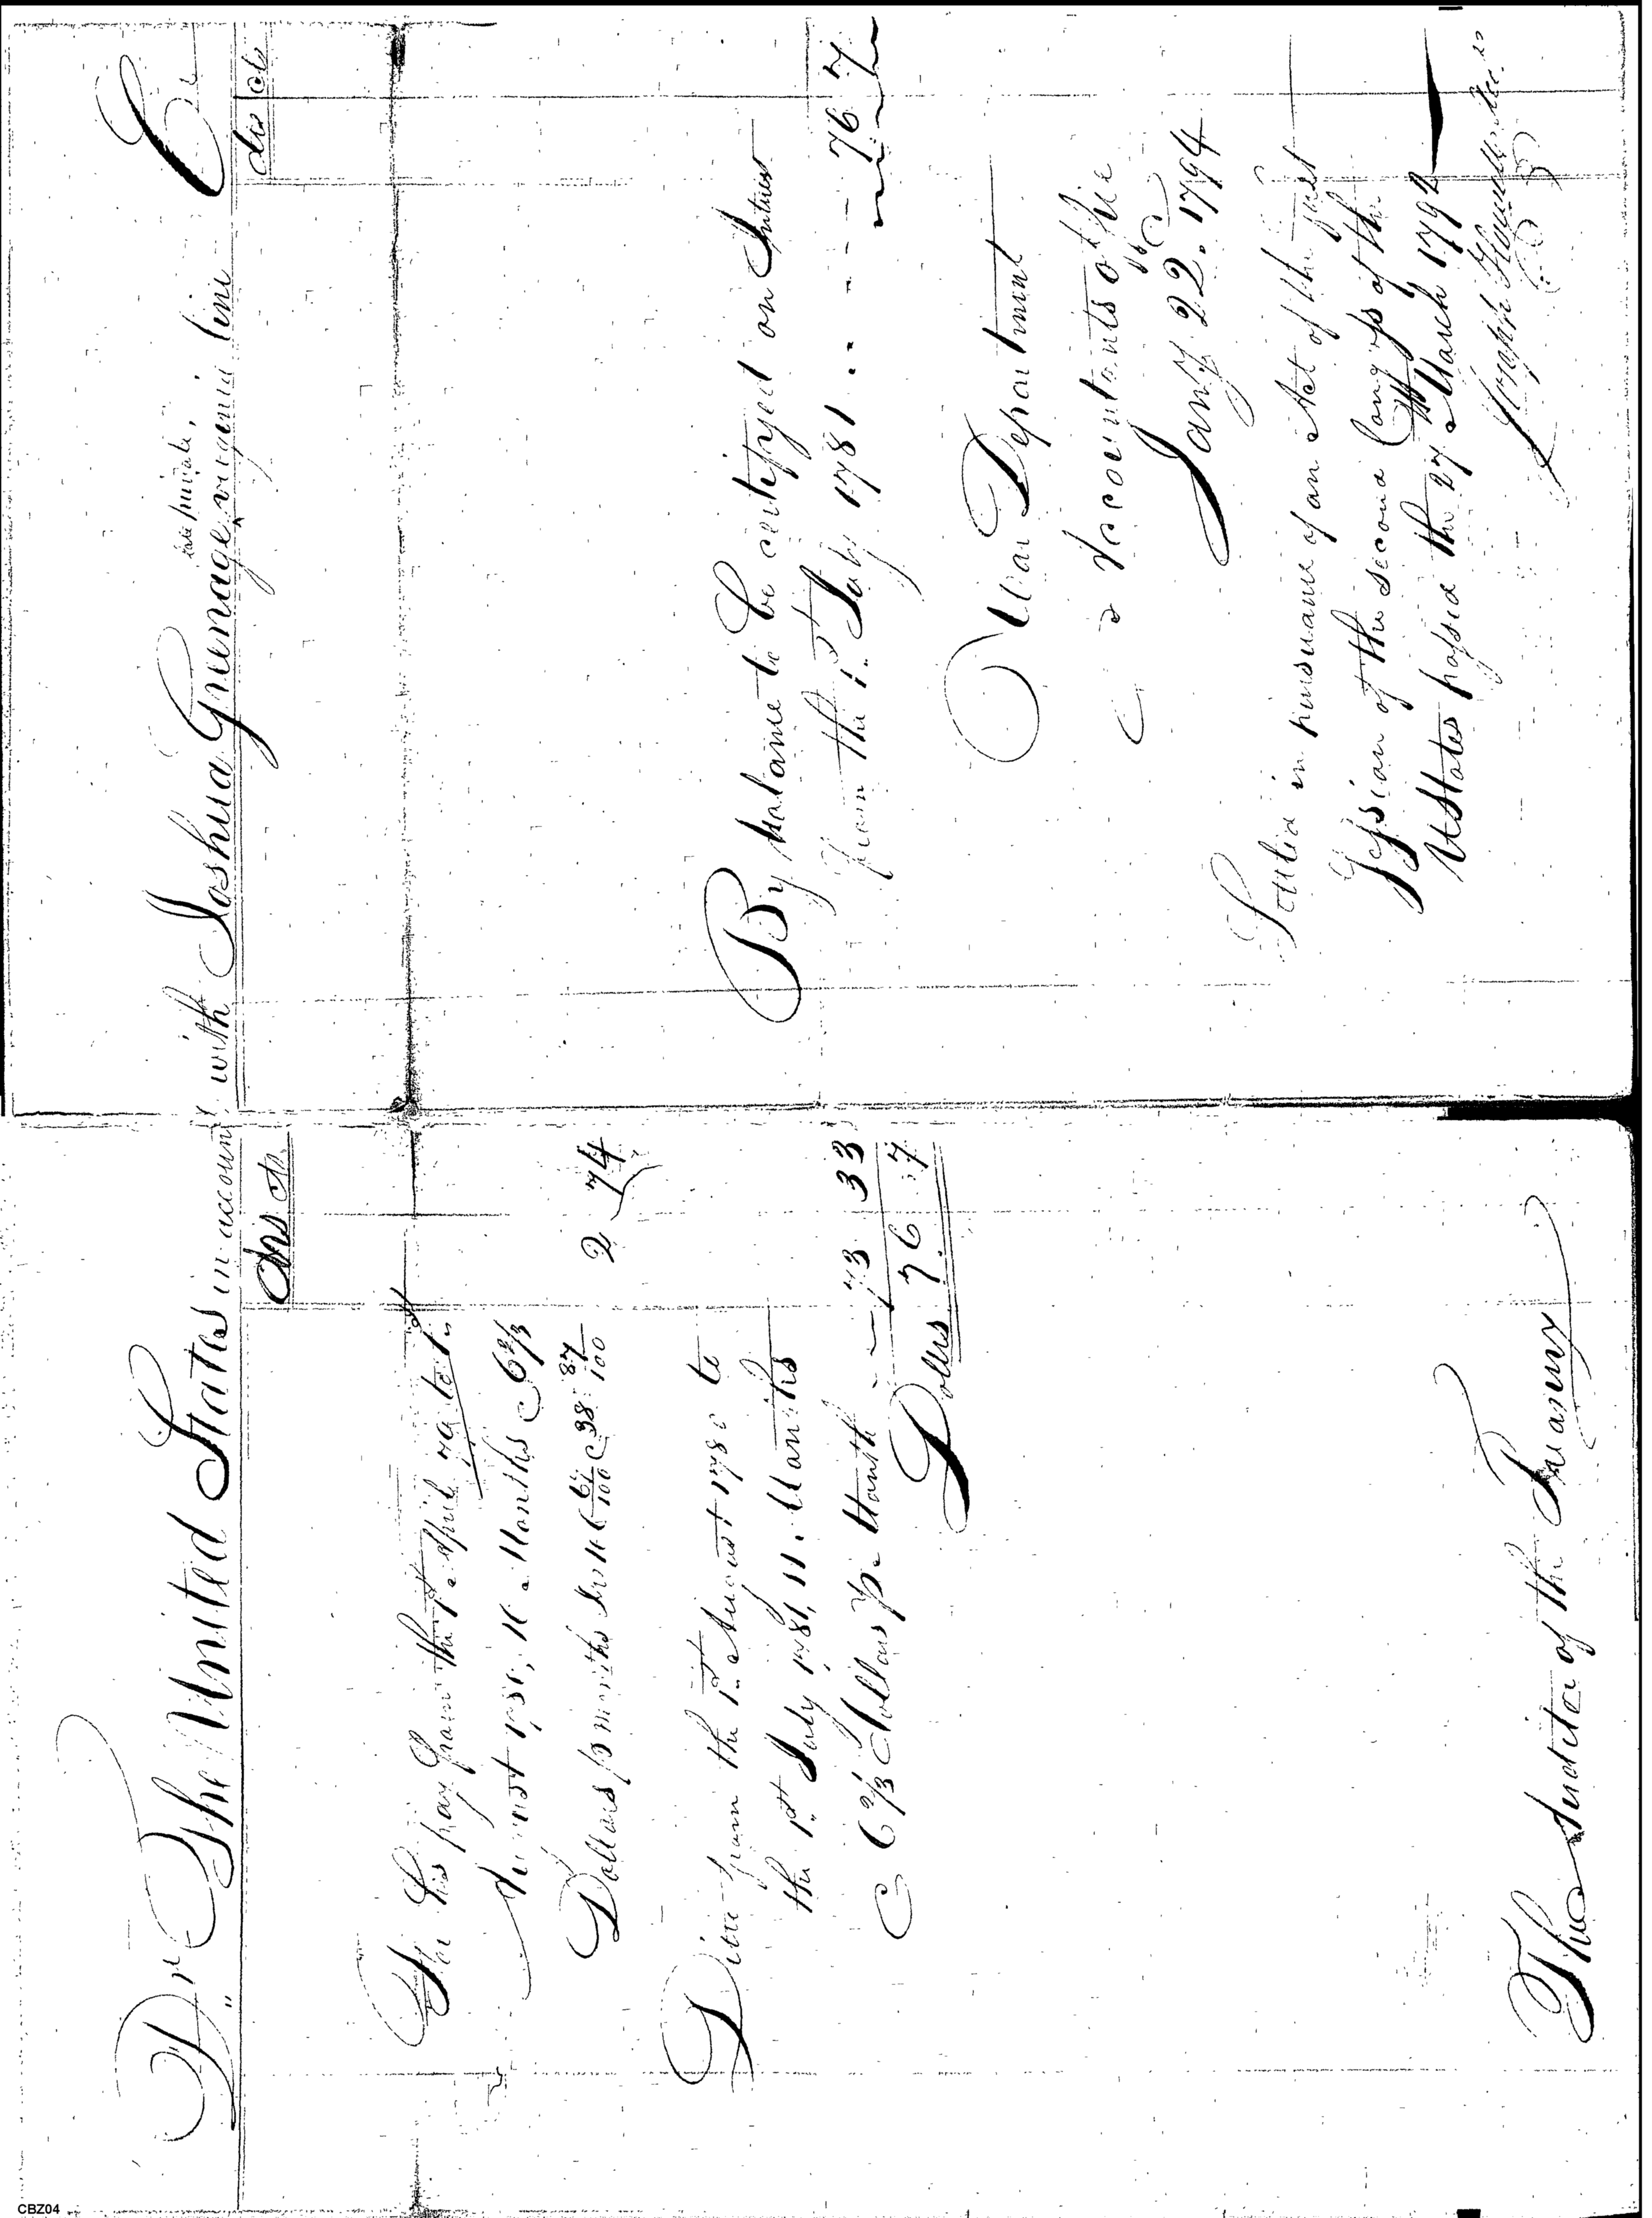 Dr. The United States in account with Joshua Greenage, late private, virginia line Cr.
Dols cts
For his pay from the 1st April 79 to 1st
August 1780, 16 Months @ 6 2/3
Dollars p month is Dols 106 67/100 @ 38 87/100 2 74
Ditto from the 1st August 1780 to
the 1st July 1781, 11 Months
@ 6 2/3 Dollars p. Month -- 73 33
Dollars 76. 7
The Auditor of the Treasury
dls cts
By balance to be certifyed on Interest
from the 1st July 1781 .. - - - 76 7
War Department
Accountants office
Jany 22. 1794
Settled in pursuance of an Act of the first
Session of the second Congress of the
U States passed the 27 March 1792
Joseph Howell
CBZ04